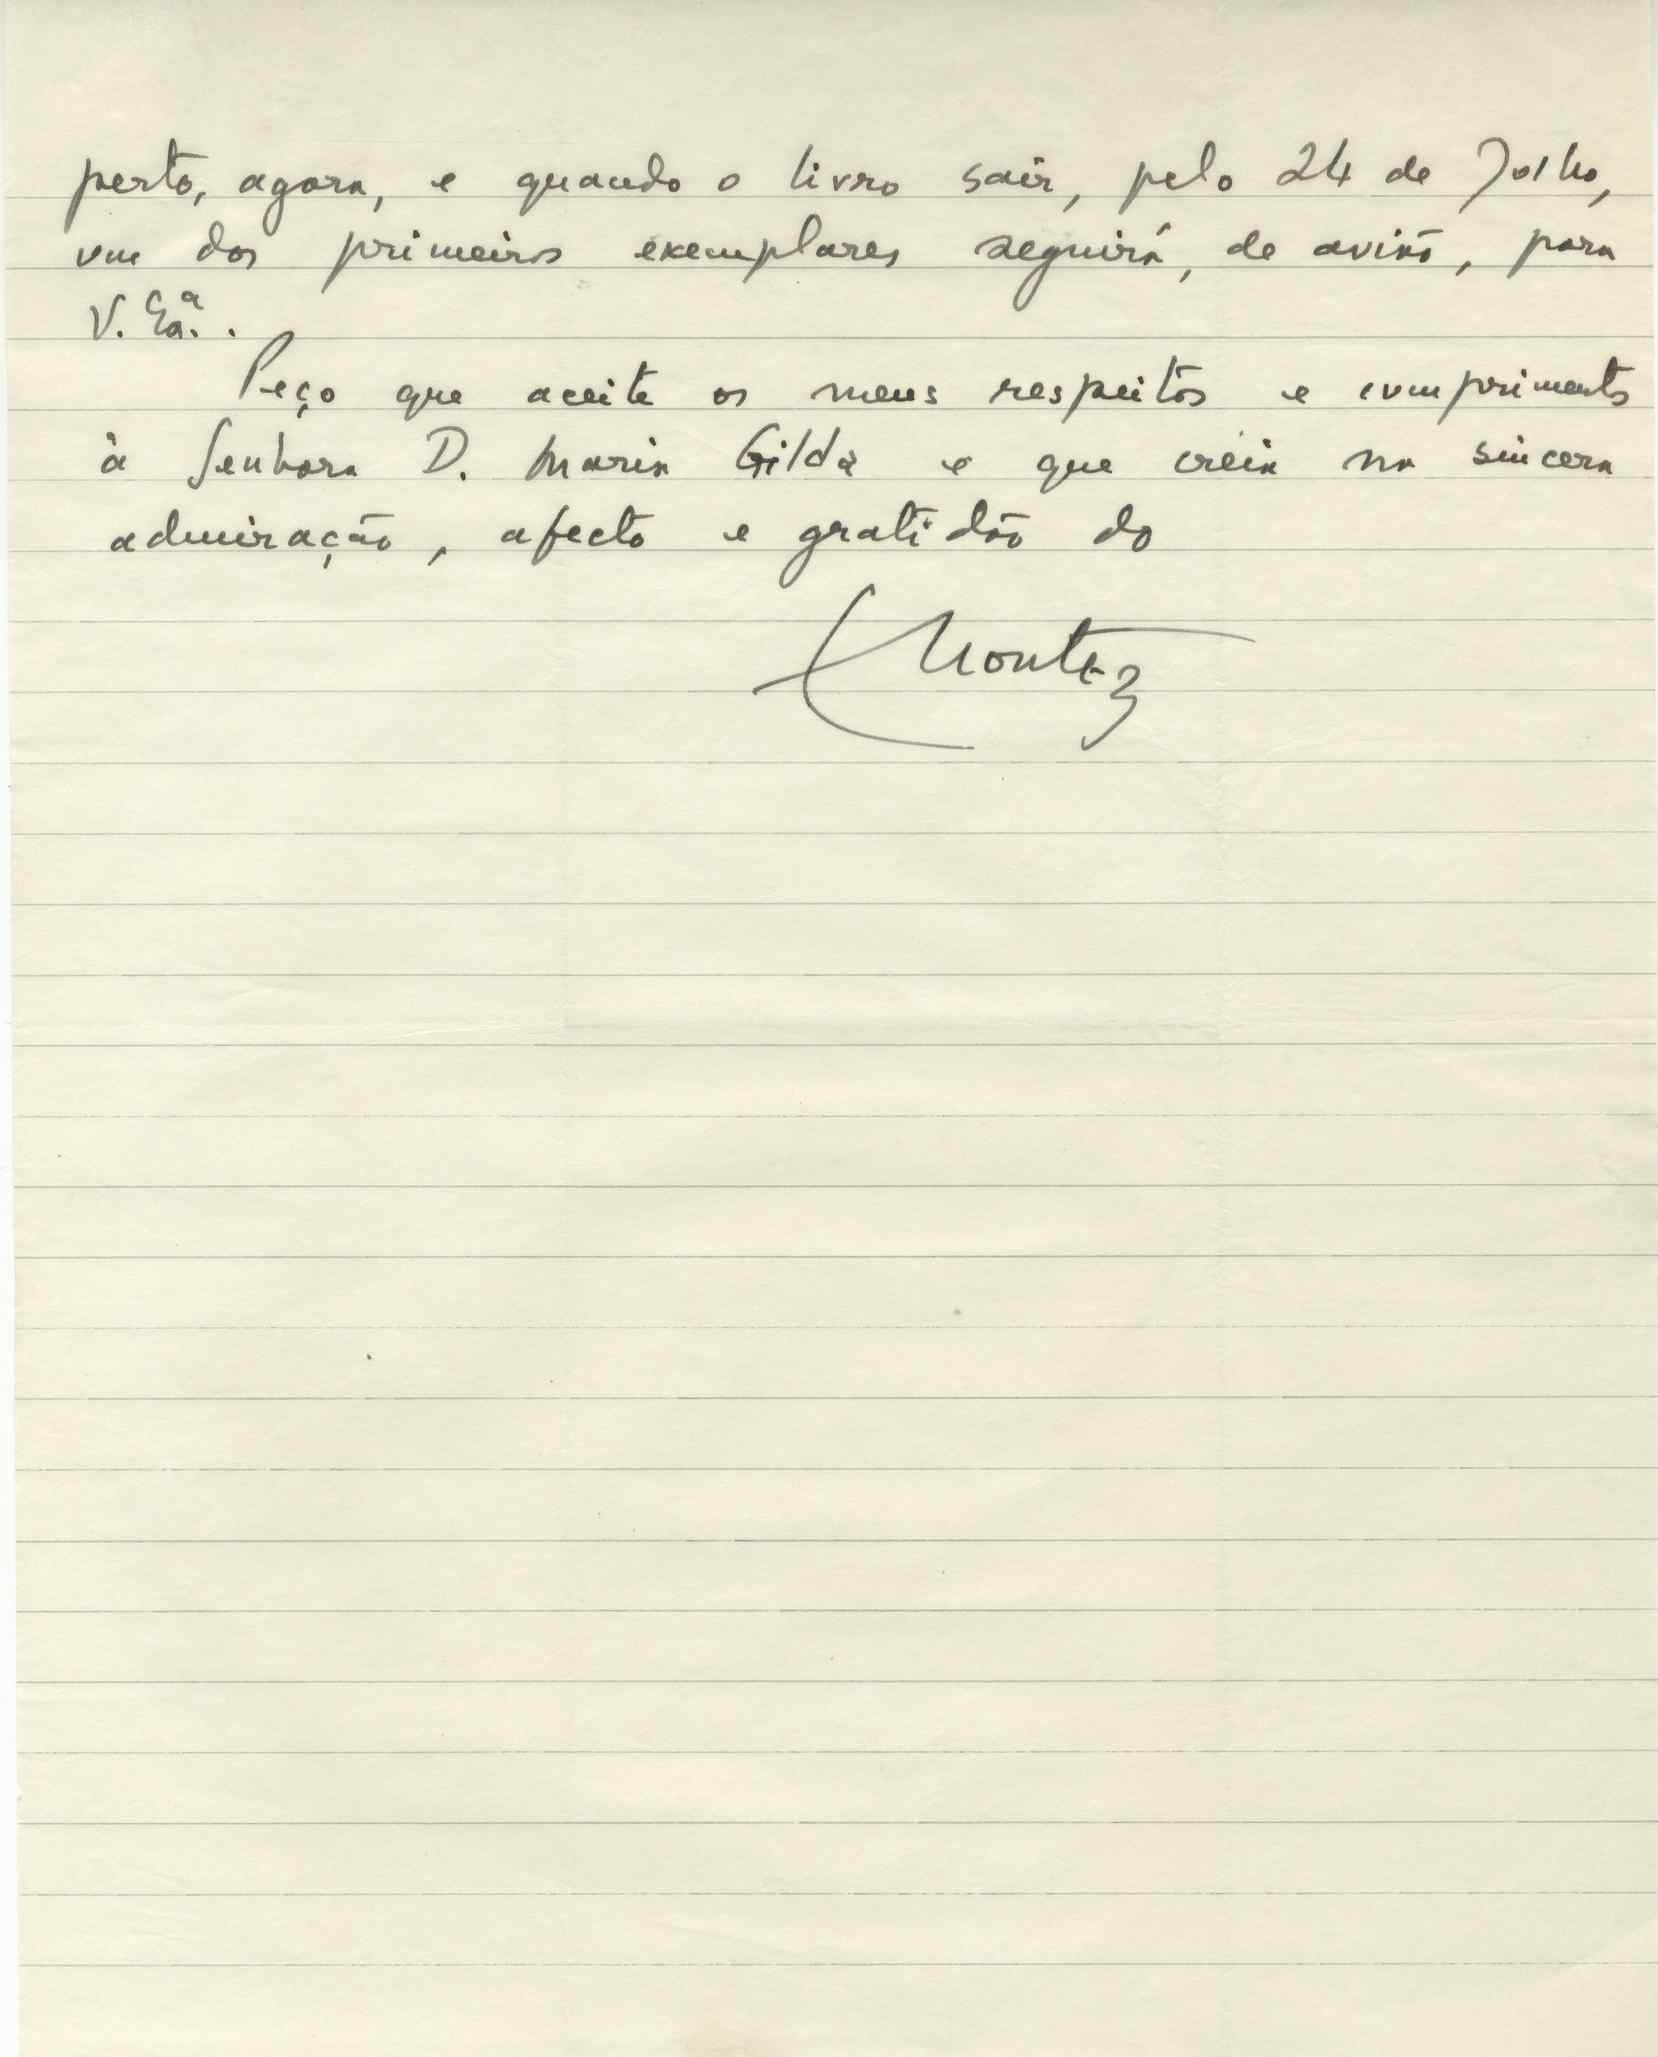 perto, agora, e quando o livro sair, pelo 24 de Julho,
um dos primeiros exemplares seguirá, de avião, para
V. Exª. .
Peço que aceite os meus respeitos e cumprimentos
à Senhora D. Maria Gilda e que creia na sincera
admiração, afecto e gratidão do
Montez